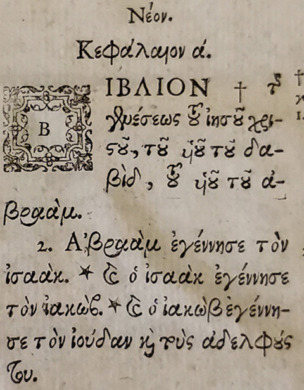 Νέον.
Κεφάλαιον ά.
ΒΙΒΛΙΟΝ † τῆς
γενέσεως τοῦ ἰησοῦ χρι-
στοῦ, τοῦ ὑιοῦ τοῦ δα-
βὶδ, τοῦ ὑιοῦ τοῦ ἀ-
βραάμ.
2. Ἀβραὰμ ἐγέννησε τὸν
ἰσαάκ. * Καὶ ὁ ἰσαὰκ ἐγέννησε
τὸν ἰακώβ. * Καὶ ὁ ἰακὼβ ἐγέννη-
σε τὸν ἰούδαν καὶ τοὺς ἀδελφούς
του.